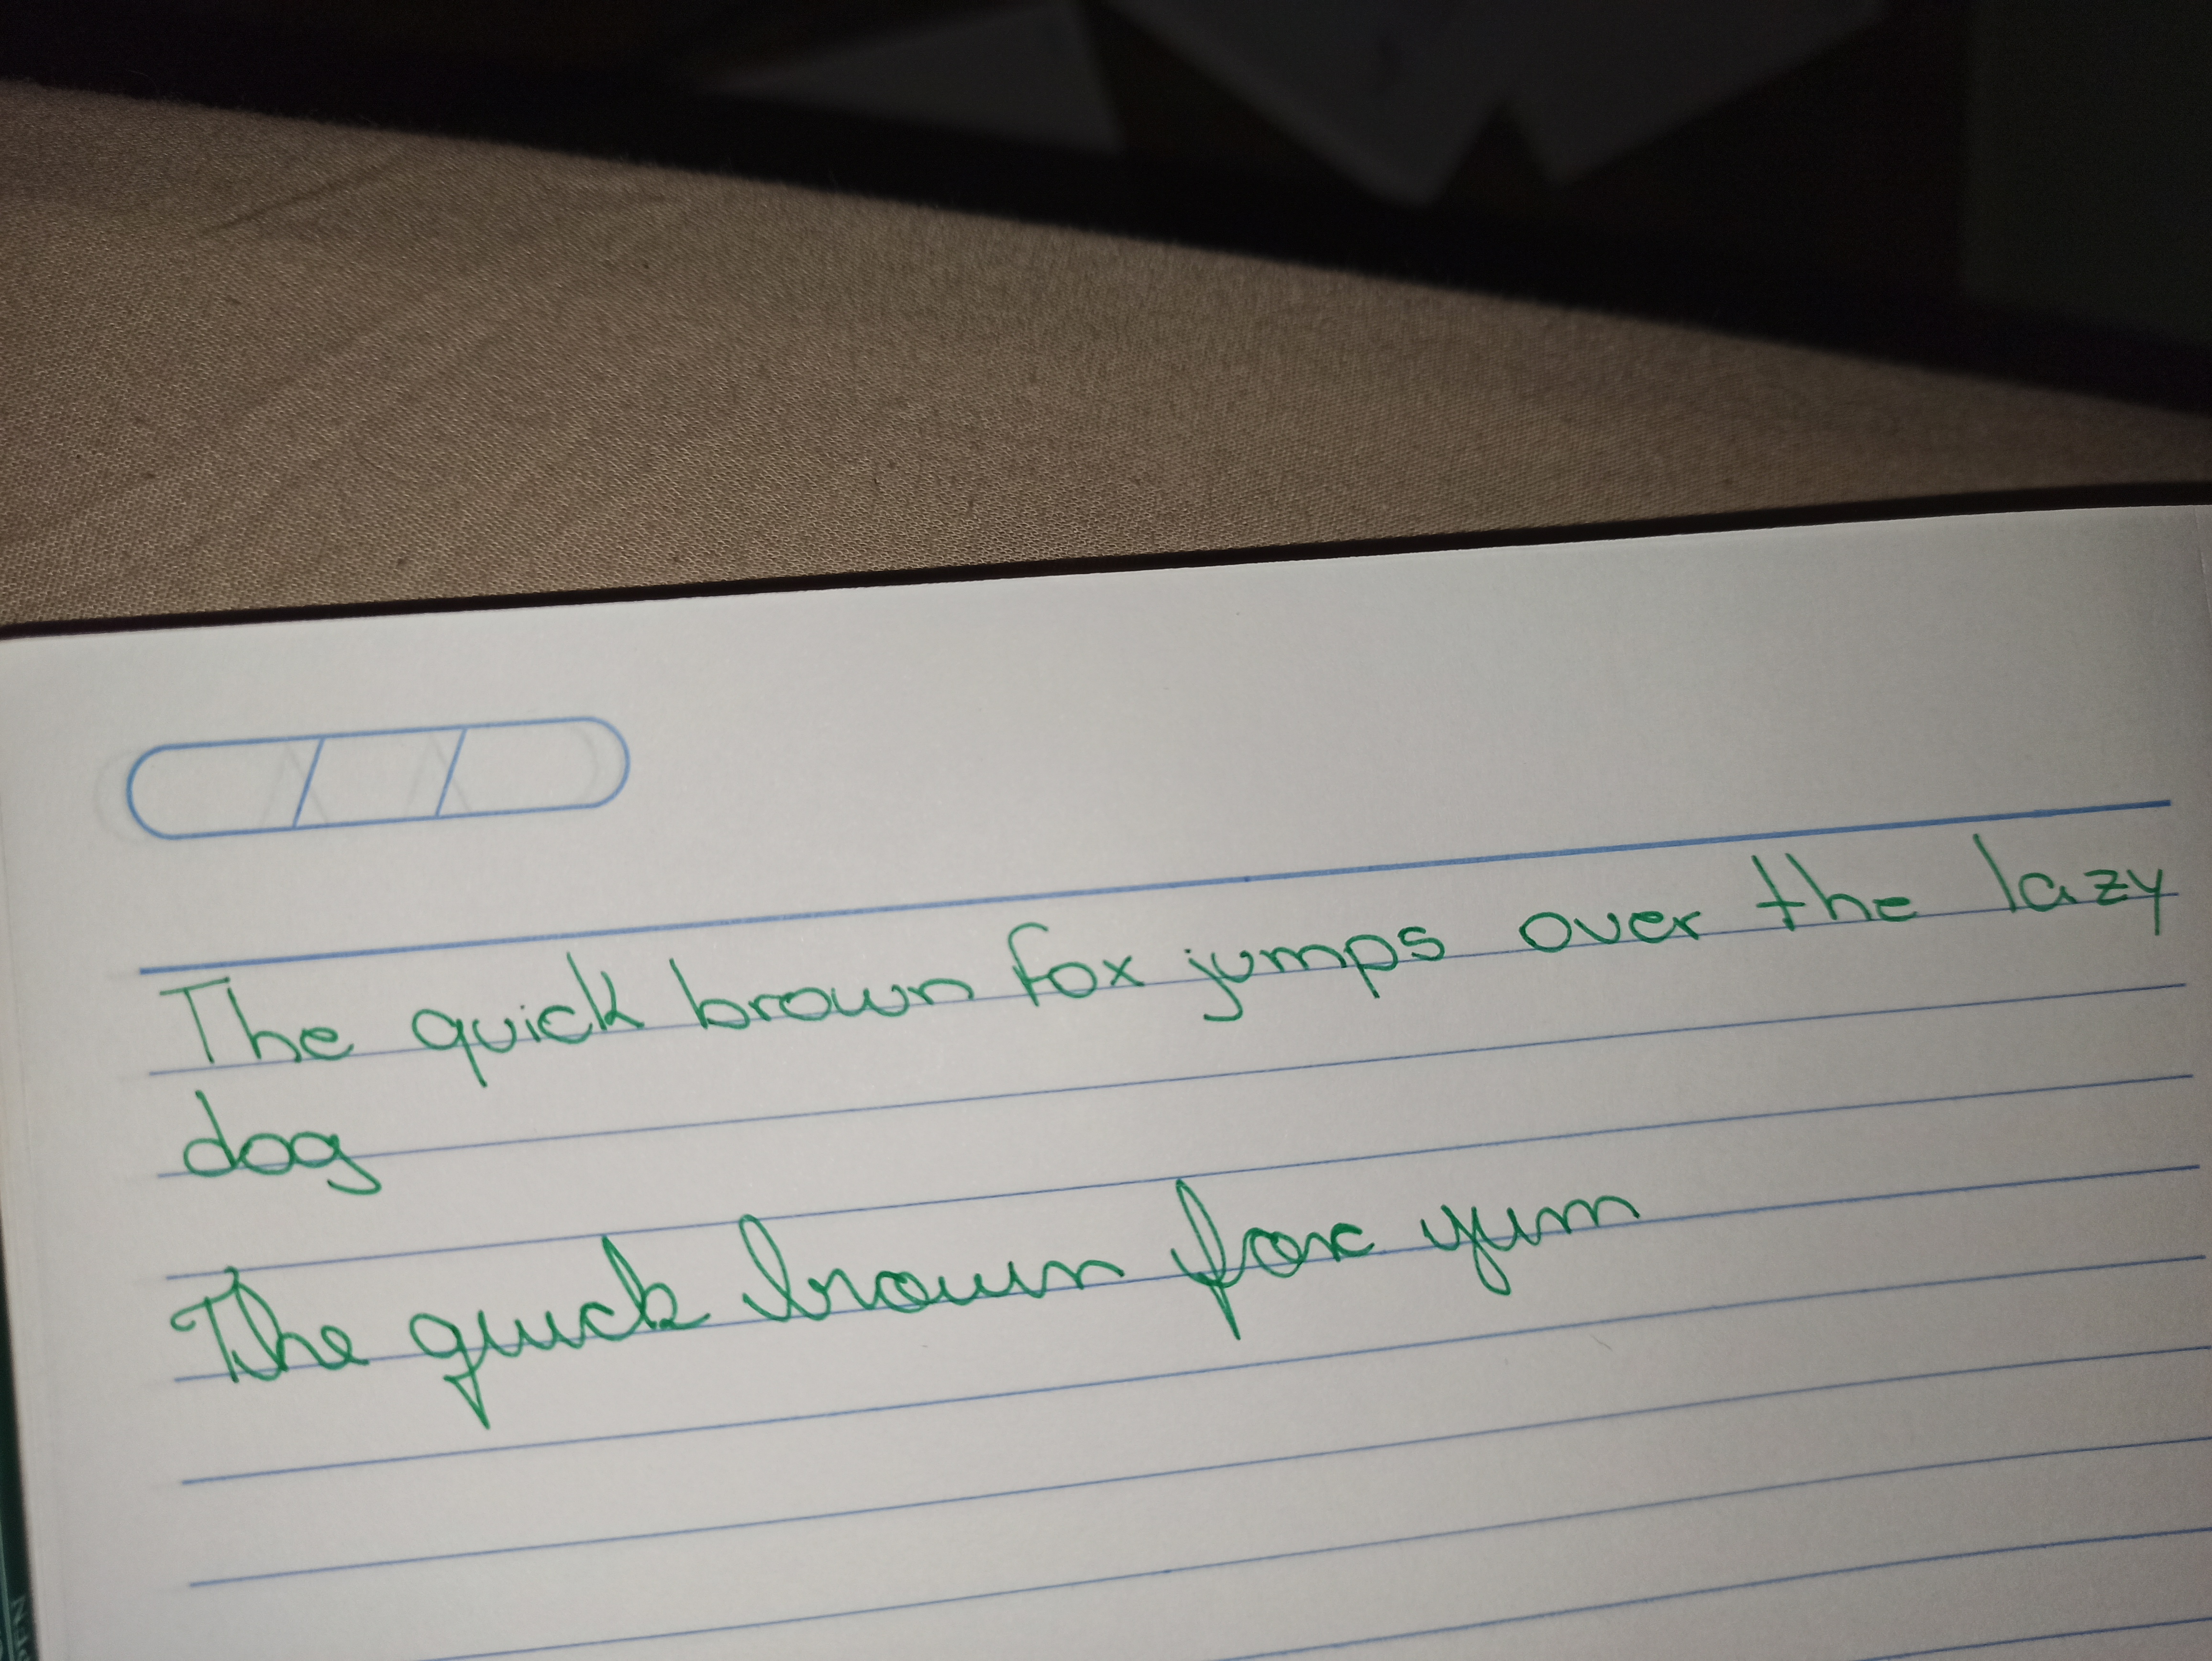 The quick brown fox jumps over the lazy
dog
The quick brown fox yum